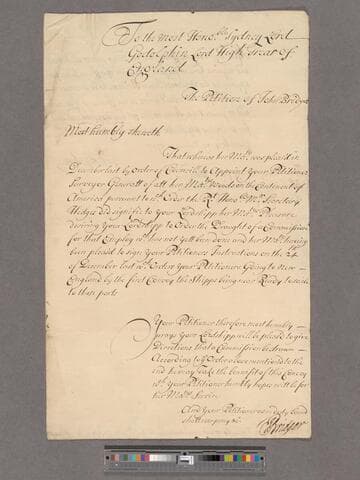 To the most Hono:ble Sydney Lord
Godolphin Lord High Treár of
England
The Petition of John Bridger
Most humbly sheweth
That whereas her Ma:ty was pleas'd in
December last by order of Councill to Appoint your Petitioner
Surveyor Generall of all her Ma:tys Woods on the Continent of
America pursuant to w:ch Order the R:t Hono:ble M:r Secretary
Hedges did signifie to your Lordshipp her Ma:tys Pleasure
desiring your Lordshipp to Order the Draught of a Commission
for that Employ w:ch has not yett been done and her Ma:ty having
been pleased to sign your Petitioners Instructions on the 24
of December last w:ch Orders your Petitioners Going to New-
England by the first Convoy the Shipps being near Ready to sail
to those parts
Your Petitioner therefore most humbly
prays your Lordshipp will be pleas'd to give
Directions that a Commission be drawn
According to y:e Order above mentioned to the
end he may Take the benefit of this Convoy
w:ch your Petitioner humbly hopes will be for
her Ma:tys Service
And your Petitioner as in duty bound
shall ever pray &c
JBridger